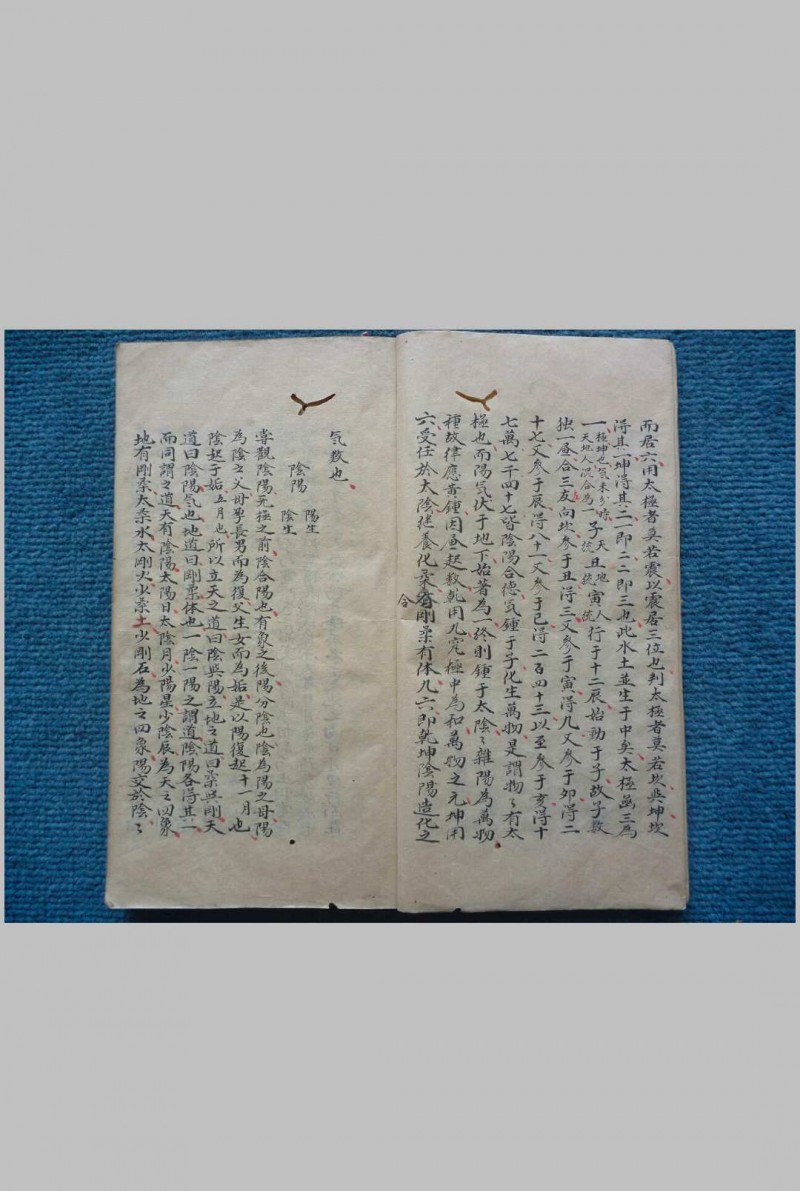 而居六用太極者莫若震以震居三位也判太極者莫若坎與坤坎
得其一坤得其二一即二二即三也此水土並生于中矣太極函三為
一極中也氣未分時天地人混合為一子天統丑地統寅人統行于十二辰始動于子故子数
独一昼合三友向坎参于丑得三又参于寅得九又参于卯得二
十七又参于辰得八十一又参于巳得二百四十三以至参于亥得十
七萬七千四十七皆陰陽合德気鍾于子化生萬物是謂物々有太
極也而陽気伏于地下始著為一終則鍾于太陰々雜陽為萬物
種故律應黃鍾因昼起数乾用九究極中為和萬物之元坤用
六受任於大陰継養化柔合剛柔有体九六即乾坤陰陽造化之
気数也
陰陽 陽生 陰生
嘗觀陰陽无極之前陰合陽也有象之後陽分陰也陰為陽之母陽
為陰之父母孕長男而為復父生女而為姤是以陽復起十一月也
陰起于姤五月也所以立天之道曰陰與陽立地之道曰柔與剛天
道曰陰陽気也地道曰剛柔体也一陰一陽之謂道陰陽各得其一
而同謂之道天有陰陽太陽日太陰月少陽星少陰辰為天之四象
地有剛柔太柔水太剛火少柔土少剛石為地之四象陽交於陰々